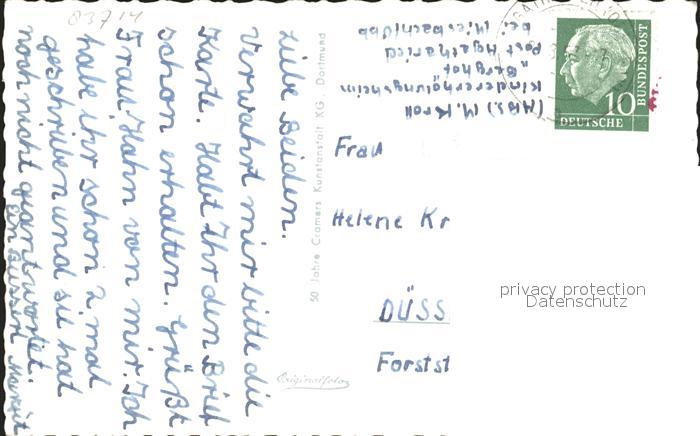 83714
Liebe Beiden.
Verwahrt mir bitte die
Karte. Habt Ihr den Brief
schon erhalten. Grüßt
Frau Hahn von mir. Ich
habe ihr schon 2 mal
geschrieben und sie hat
noch nicht geantwortet.
Ein Busserl Margit
50 Jahre Cramers Kunstanstalt KG., Dortmund
Originalfoto
(Abs.) M. Kroll
Kindererholungsheim
"Berghof"
Post Agatharied
bei Miesbach/Obb
DEUTSCHE
BUNDESPOST
10
Frau
Helene Kr
DÜSS
Forstst
privacy protection
Datenschutz